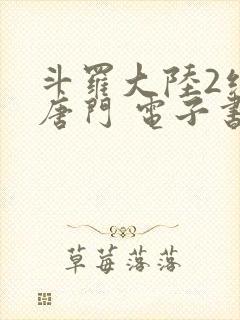 斗羅大陸2
唐門 電子書
草莓落落